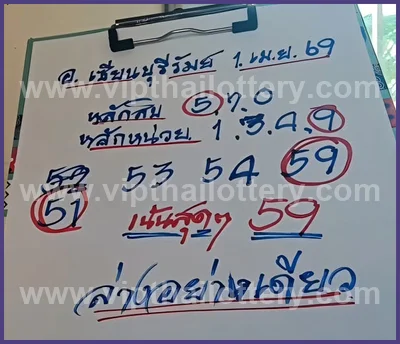 อ. เซียนบุรีรัมย์ 1.เม.ย. 69
www.vipthailottery.com
หลักสิบ 5.7.0
หลักหน่วย. 1.3.4.9
53 54 59
www.vipthailottery.com
51 เน้นสุดๆ 59
www.vipthailottery.com
ล่างอย่างเดียว